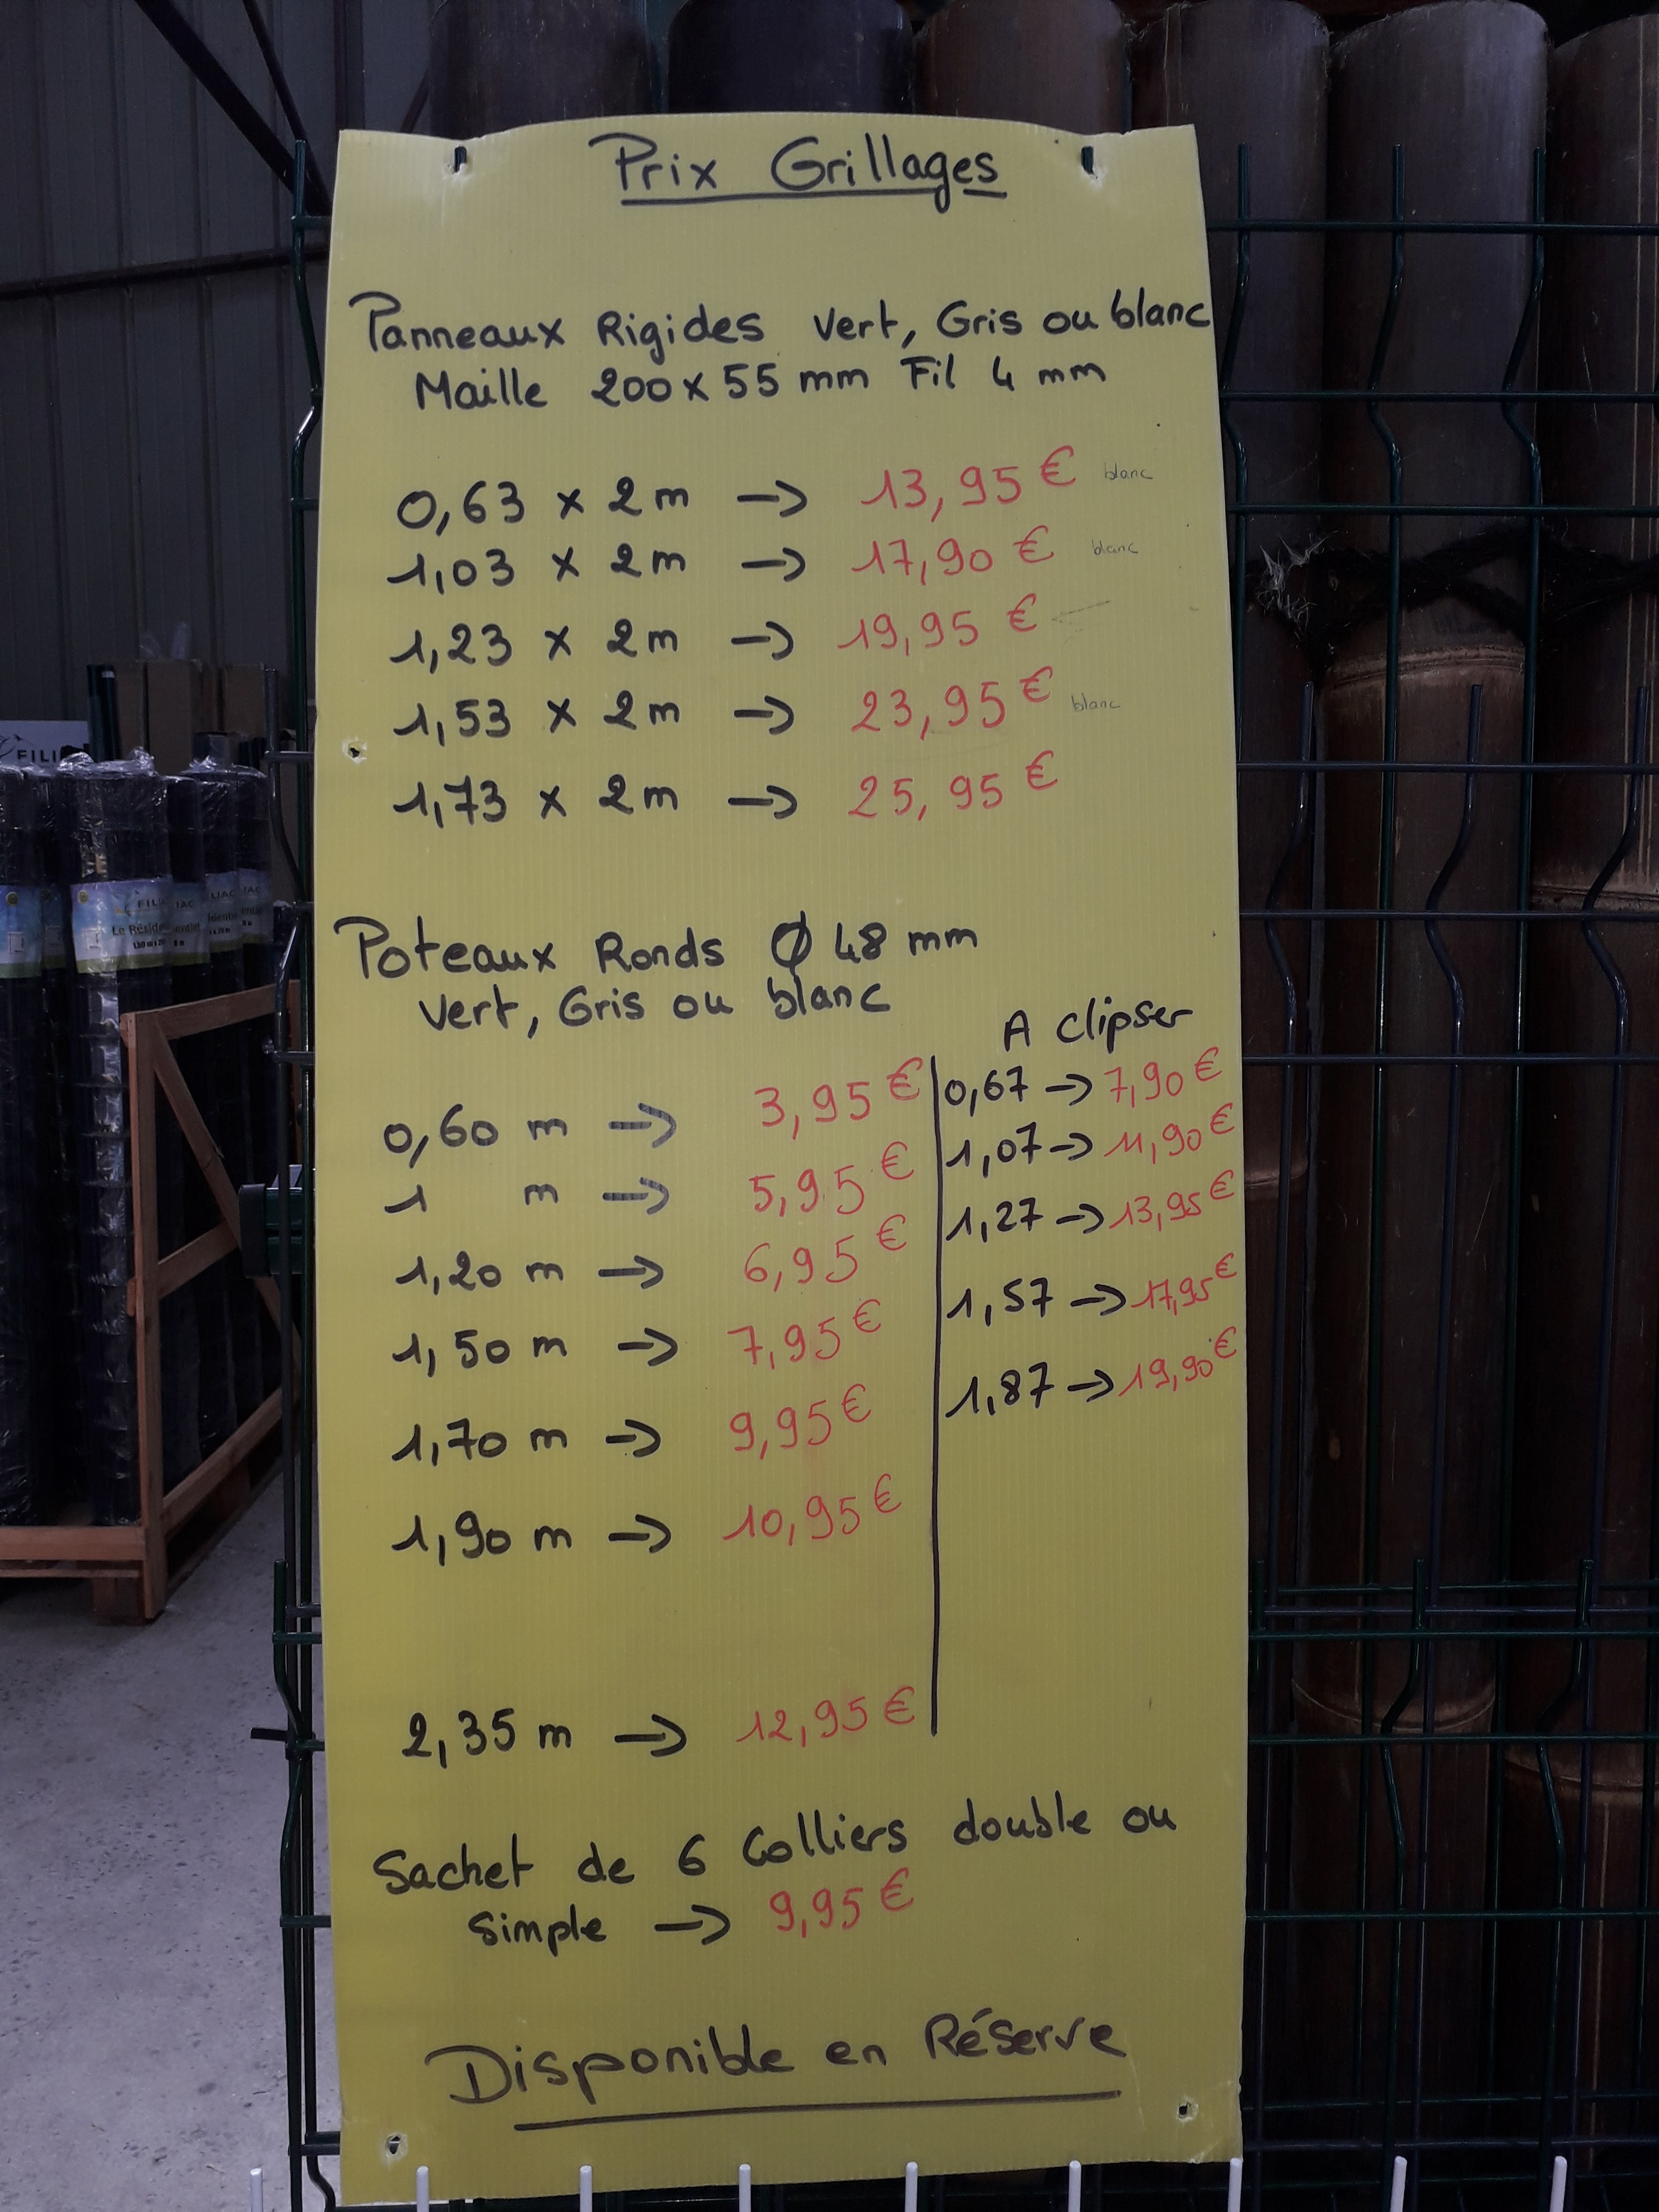 Prix Grillages
Panneaux Rigides Vert, Gris ou blanc
Maille 200 x 55 mm Fil 4 mm
0,63 x 2 m → 13,95 € blanc
1,03 x 2 m → 17,90 € blanc
1,23 x 2 m → 19,95 €
1,53 x 2 m → 23,95 € blanc
1,73 x 2 m → 25,95 €
Poteaux Ronds Ø 48 mm
Vert, Gris ou blanc
0,60 m → 3,95 €
1 m → 5,95 €
1,20 m → 6,95 €
1,50 m → 7,95 €
1,70 m → 9,95 €
1,90 m → 10,95 €
2,35 m → 12,95 €
A clipser
0,67 → 7,90 €
1,07 → 11,90 €
1,27 → 13,95 €
1,57 → 17,95 €
1,87 → 19,90 €
Sachet de 6 Colliers double ou
simple → 9,95 €
Disponible en Réserve
FILI
FIL
IAC
LIAC
IAC
Le Réside